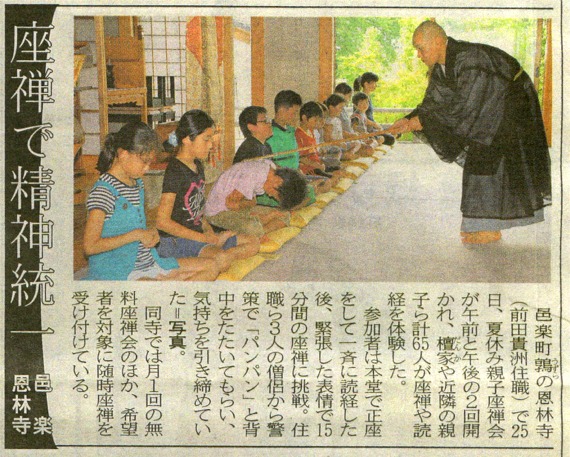 座禅で精神統一
邑楽
恩林寺
邑楽町鶉の恩林寺
(前田貴洲住職)で25
日、夏休み親子座禅会
が午前と午後の2回開
かれ、檀家や近隣の親
子ら計65人が座禅や読
経を体験した。
参加者は本堂で正座
をして一斉に読経した
後、緊張した表情で15
分間の座禅に挑戦。住
職ら3人の僧侶から警
策で「パンパン」と背
中をたたいてもらい、
気持ちを引き締めてい
た=写真。
同寺では月1回の無
料座禅会のほか、希望
者を対象に随時座禅を
受け付けている。